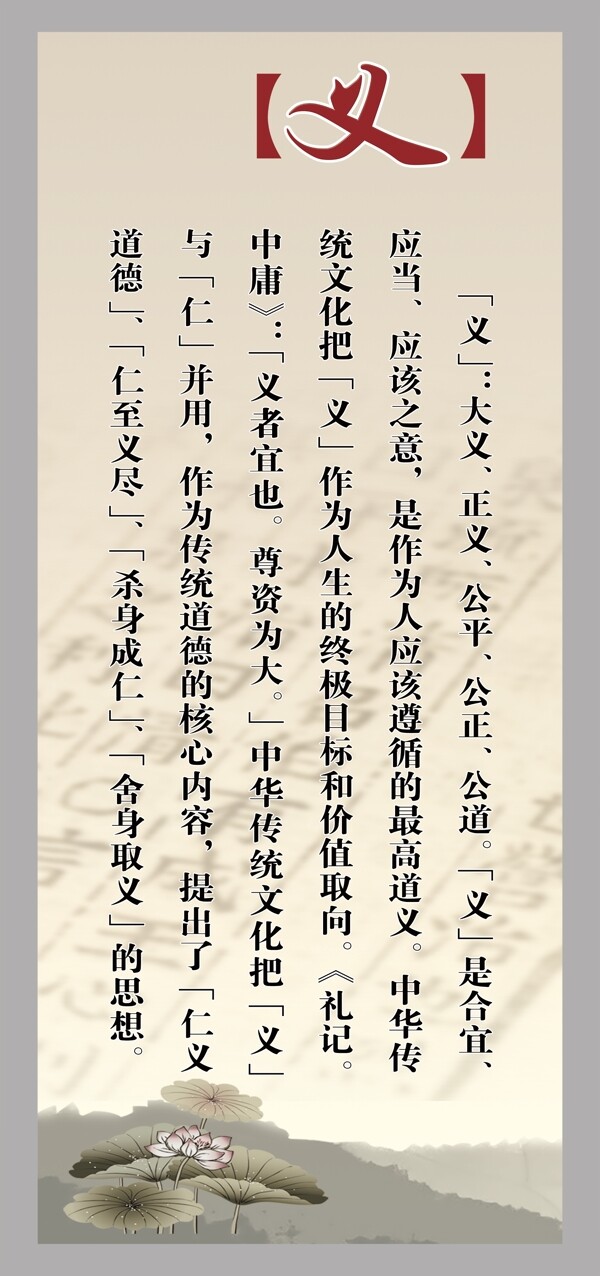 【义】
「义」：大义、正义、公平、公正、公道。「义」是合宜、
应当、应该之意，是作为人应该遵循的最高道义。中华传
统文化把「义」作为人生的终极目标和价值取向。《礼记。
中庸》：「义者宜也。尊资为大。」中华传统文化把「义」
与「仁」并用，作为传统道德的核心内容，提出了「仁义
道德」、「仁至义尽」、「杀身成仁」、「舍身取义」的思想。